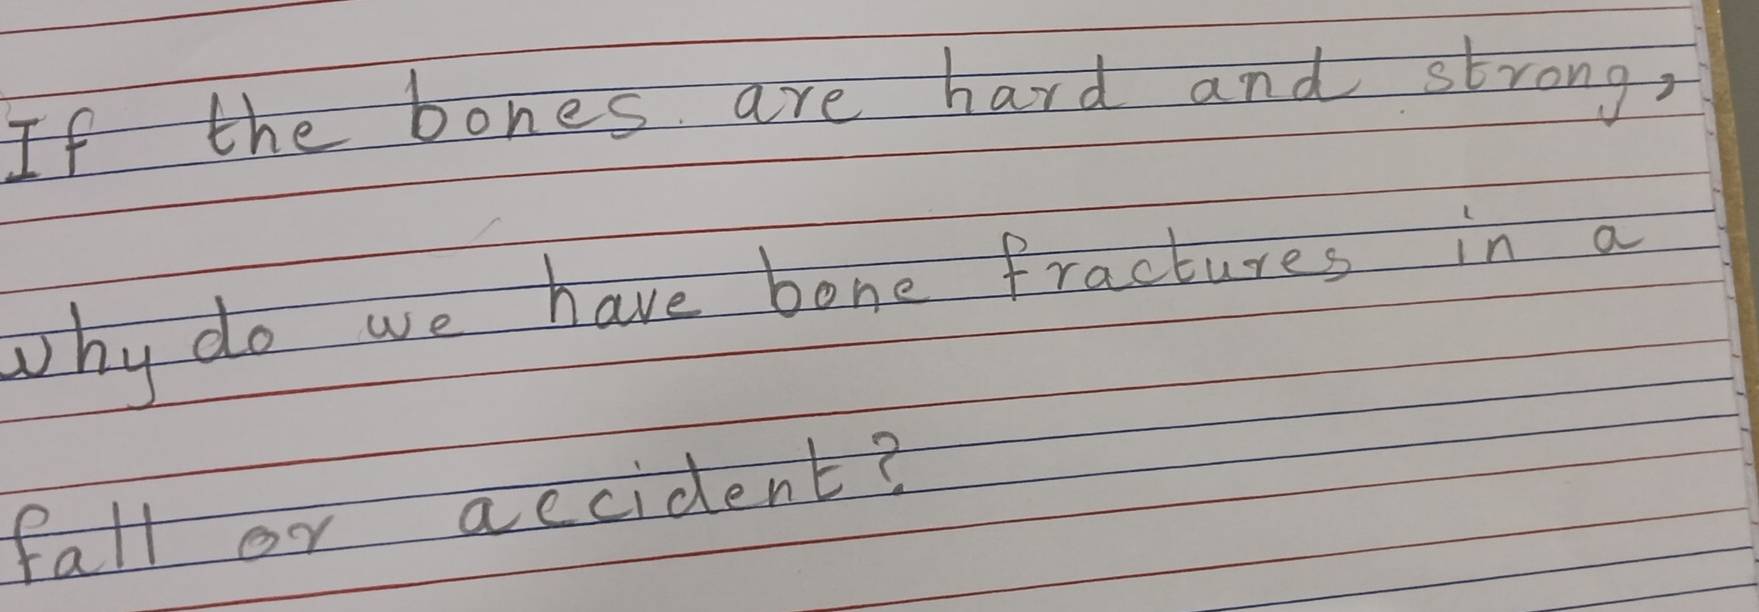 If the bones are hard and strong,
why do we have bone fractures in a
fall or accident?